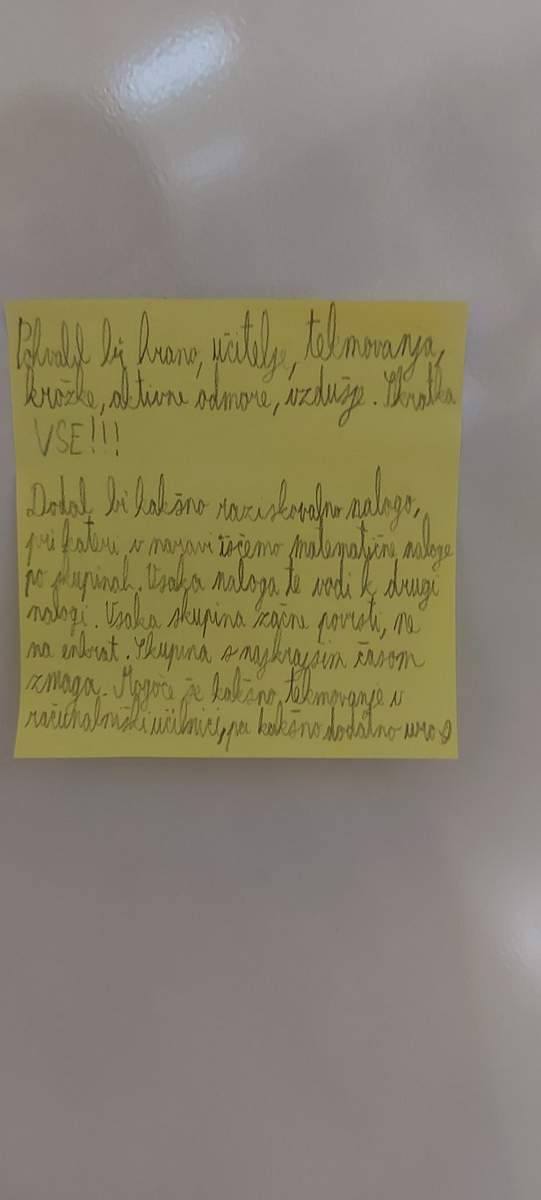 Pohvalil bi hrano, učitelje, tekmovanja,
krožke, aktivne odmore, vzdušje. Skratka
VSE!!!
Dodal bi kakšno raziskovalno nalogo,
pri kateri v naravi iščemo matematične naloge
po skupinah. Vsaka naloga te vodi k drugi
nalogi. Vsaka skupina začne povrsti, ne
na enkrat. Skupina s najkrajsim časom
zmaga. Mogoče še kakšno tekmovanje v
računalniški učilnici, pa kakšno dodatno uro